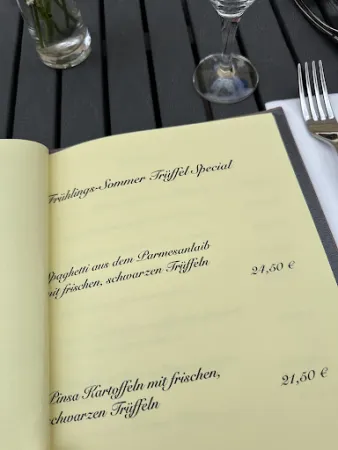 Frühlings-Sommer Trüffel Special
Spaghetti aus dem Parmesanlaib
mit frischen, schwarzen Trüffeln
24,50 €
Pinsa Kartoffeln mit frischen,
schwarzen Trüffeln
21,50 €